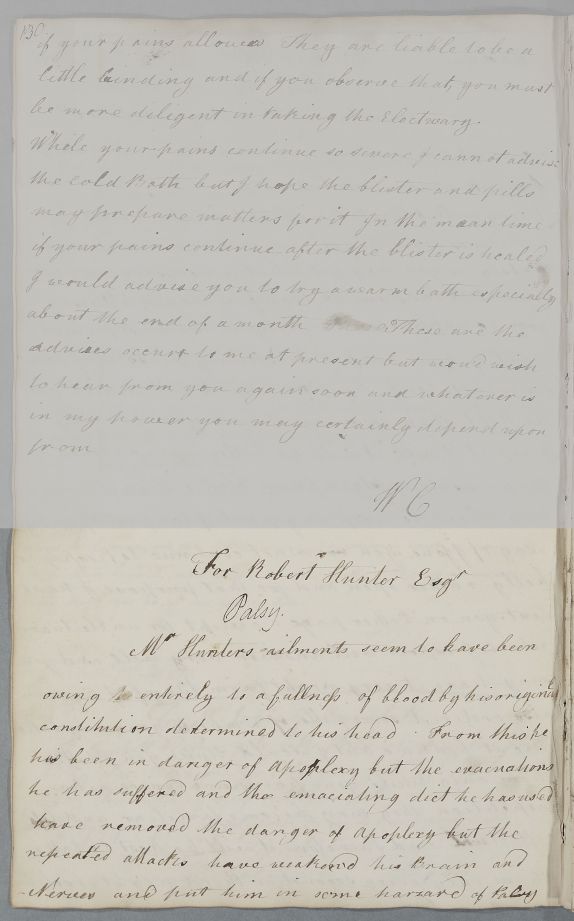 130
if your pains allower They are liable to be a
little binding and if you observe that, you must
be more diligent in taking the Electuary.
While your pains continue so severe I cannot advise
the cold Bath but I hope the blister and pills
may prepare matters for it In the mean time
if your pains continue after the blister is healed
I would advise you to try a warm bath especially
about the end of a month These are the
advices occurr to me at present but woud wish
to hear from you again soon and whatever is
in my power you may certainly depend upon
from
W C
For Robert Hunter Esqr
Palsy.
Mr Hunters ailments seem to have been
owing entirely to a fullness of blood by his original
constitution determined to his head. From this he
his been in danger of Apoplexy but the evacuations
he has suffered and the emaciating diet he has used
have removed the danger of Apoplexy but the
repeated attacks have weakend his Brain and
Nerves and put him in some harzard of Palsy